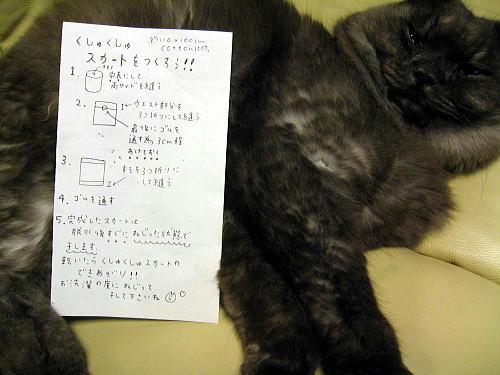 くしゅくしゅ 約110×100cm
cotton100%
スカートをつくろう!!
1. 中表にして
両サイドを縫う
2. ウエスト部分を
3つ折りにして縫う
最後にゴムを
通す為 3cm程
あけておく
3. すそを3つ折りに
して縫う
4. ゴムを通す
5. 完成したスカートは
脱水後すぐにねじった状態で
干します。
乾いたらくしゅくしゅスカートの
できあがり!!
お洗濯の度にねじって
干して下さいね